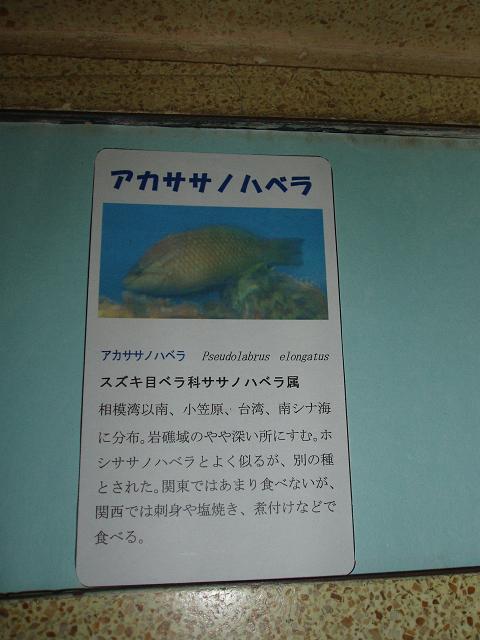 アカササノハベラ
アカササノハベラ Pseudolabrus elongatus
スズキ目ベラ科ササノハベラ属
相模湾以南、小笠原、台湾、南シナ海
に分布。岩礁域のやや深い所にすむ。ホ
シササノハベラとよく似るが、別の種
とされた。関東ではあまり食べないが、
関西では刺身や塩焼き、煮付けなどで
食べる。